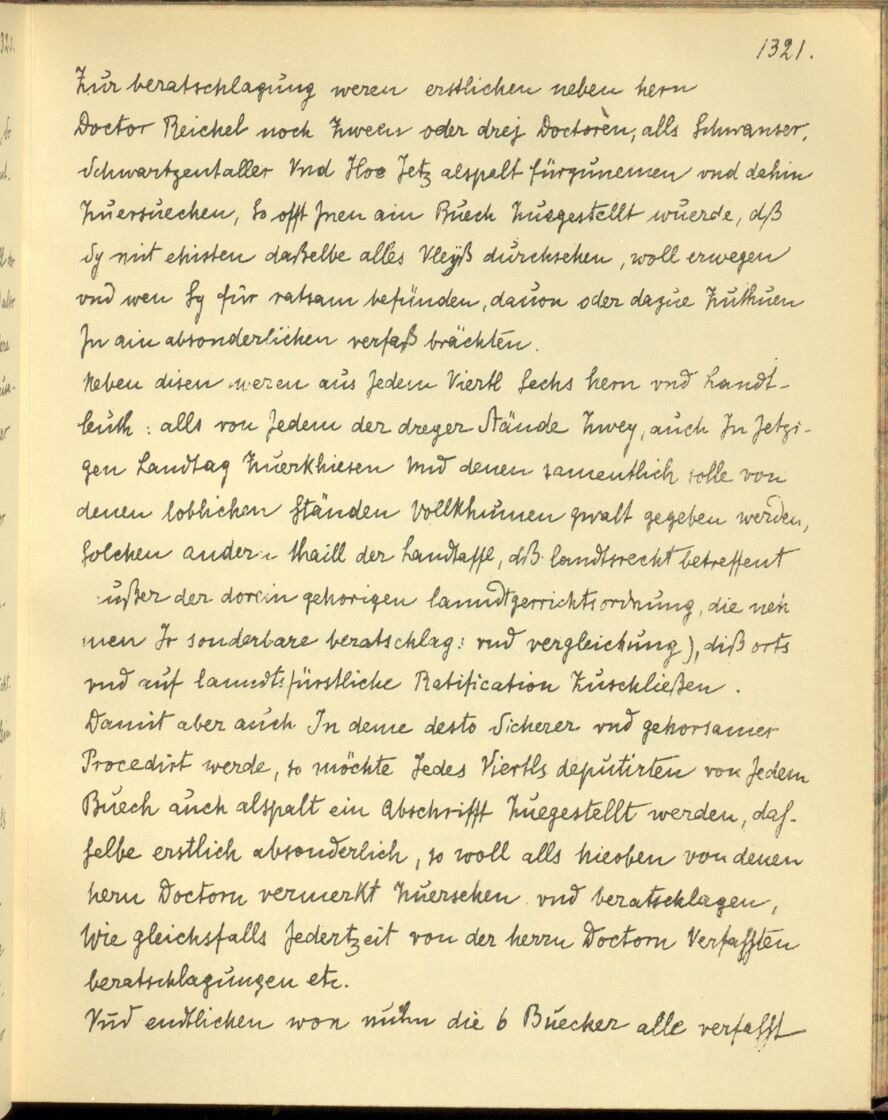 1321.
Zur beratschlagung weren erstlichen neben hern
Doctor Reichel noch Zween oder drej Doctoren, alls Schwanser,
Schwartzentaller Vnd Hoe Jetz alspalt fürzunemen vnd dahin
Zuersuechen, So offt Jnen ain Buech Zuegestellt wuerde, dß
Sy mit ehisten daßelbe alles Vleyß durchsehen, woll erwegen
vnd wen Sy für ratsam befünden, dauon oder dazue Zuthuen
Jn ain absonderlichen verfaß brächten.
Neben disen weren aus Jedem Viertl Sechs hern vnd Landt-
leuth: alls von Jedem der dreyer Stände Zwey, auch Jn Jetzi-
gen Landtag Zuerkhiesen Vnd denen samentlich solle von
denen loblichen Ständen Vollkhumen gwalt gegeben werden,
Solchen andern thaill der Landtaffl, dß landtsrecht betreffent
außer der dorein gehorigen lanndtgerrichtsordnung, die neh
men Jr sonderbare beratschlag: vnd vergleichung), diß orts
vnd auf lanndtsfürstliche Ratification Zuschließen.
Damit aber auch Jn deme desto Sicherer vnd gehorsamer
Procedirt werde, so möchte Jedes Viertls deputirten von Jedem
Buech auch alspalt ein Abschrifft Zuegestellt werden, das-
selbe erstlich absonderlich, so woll alls hieoben von denen
hern Doctorn vermerkt Zuersehen vnd beratschlagen,
Wie gleichsfalls Jedertzeit von der herrn Doctorn Verfassten
beratschlagungen etc.
Vnd endtlichen won nuhn die 6 Buecher alle verfasst